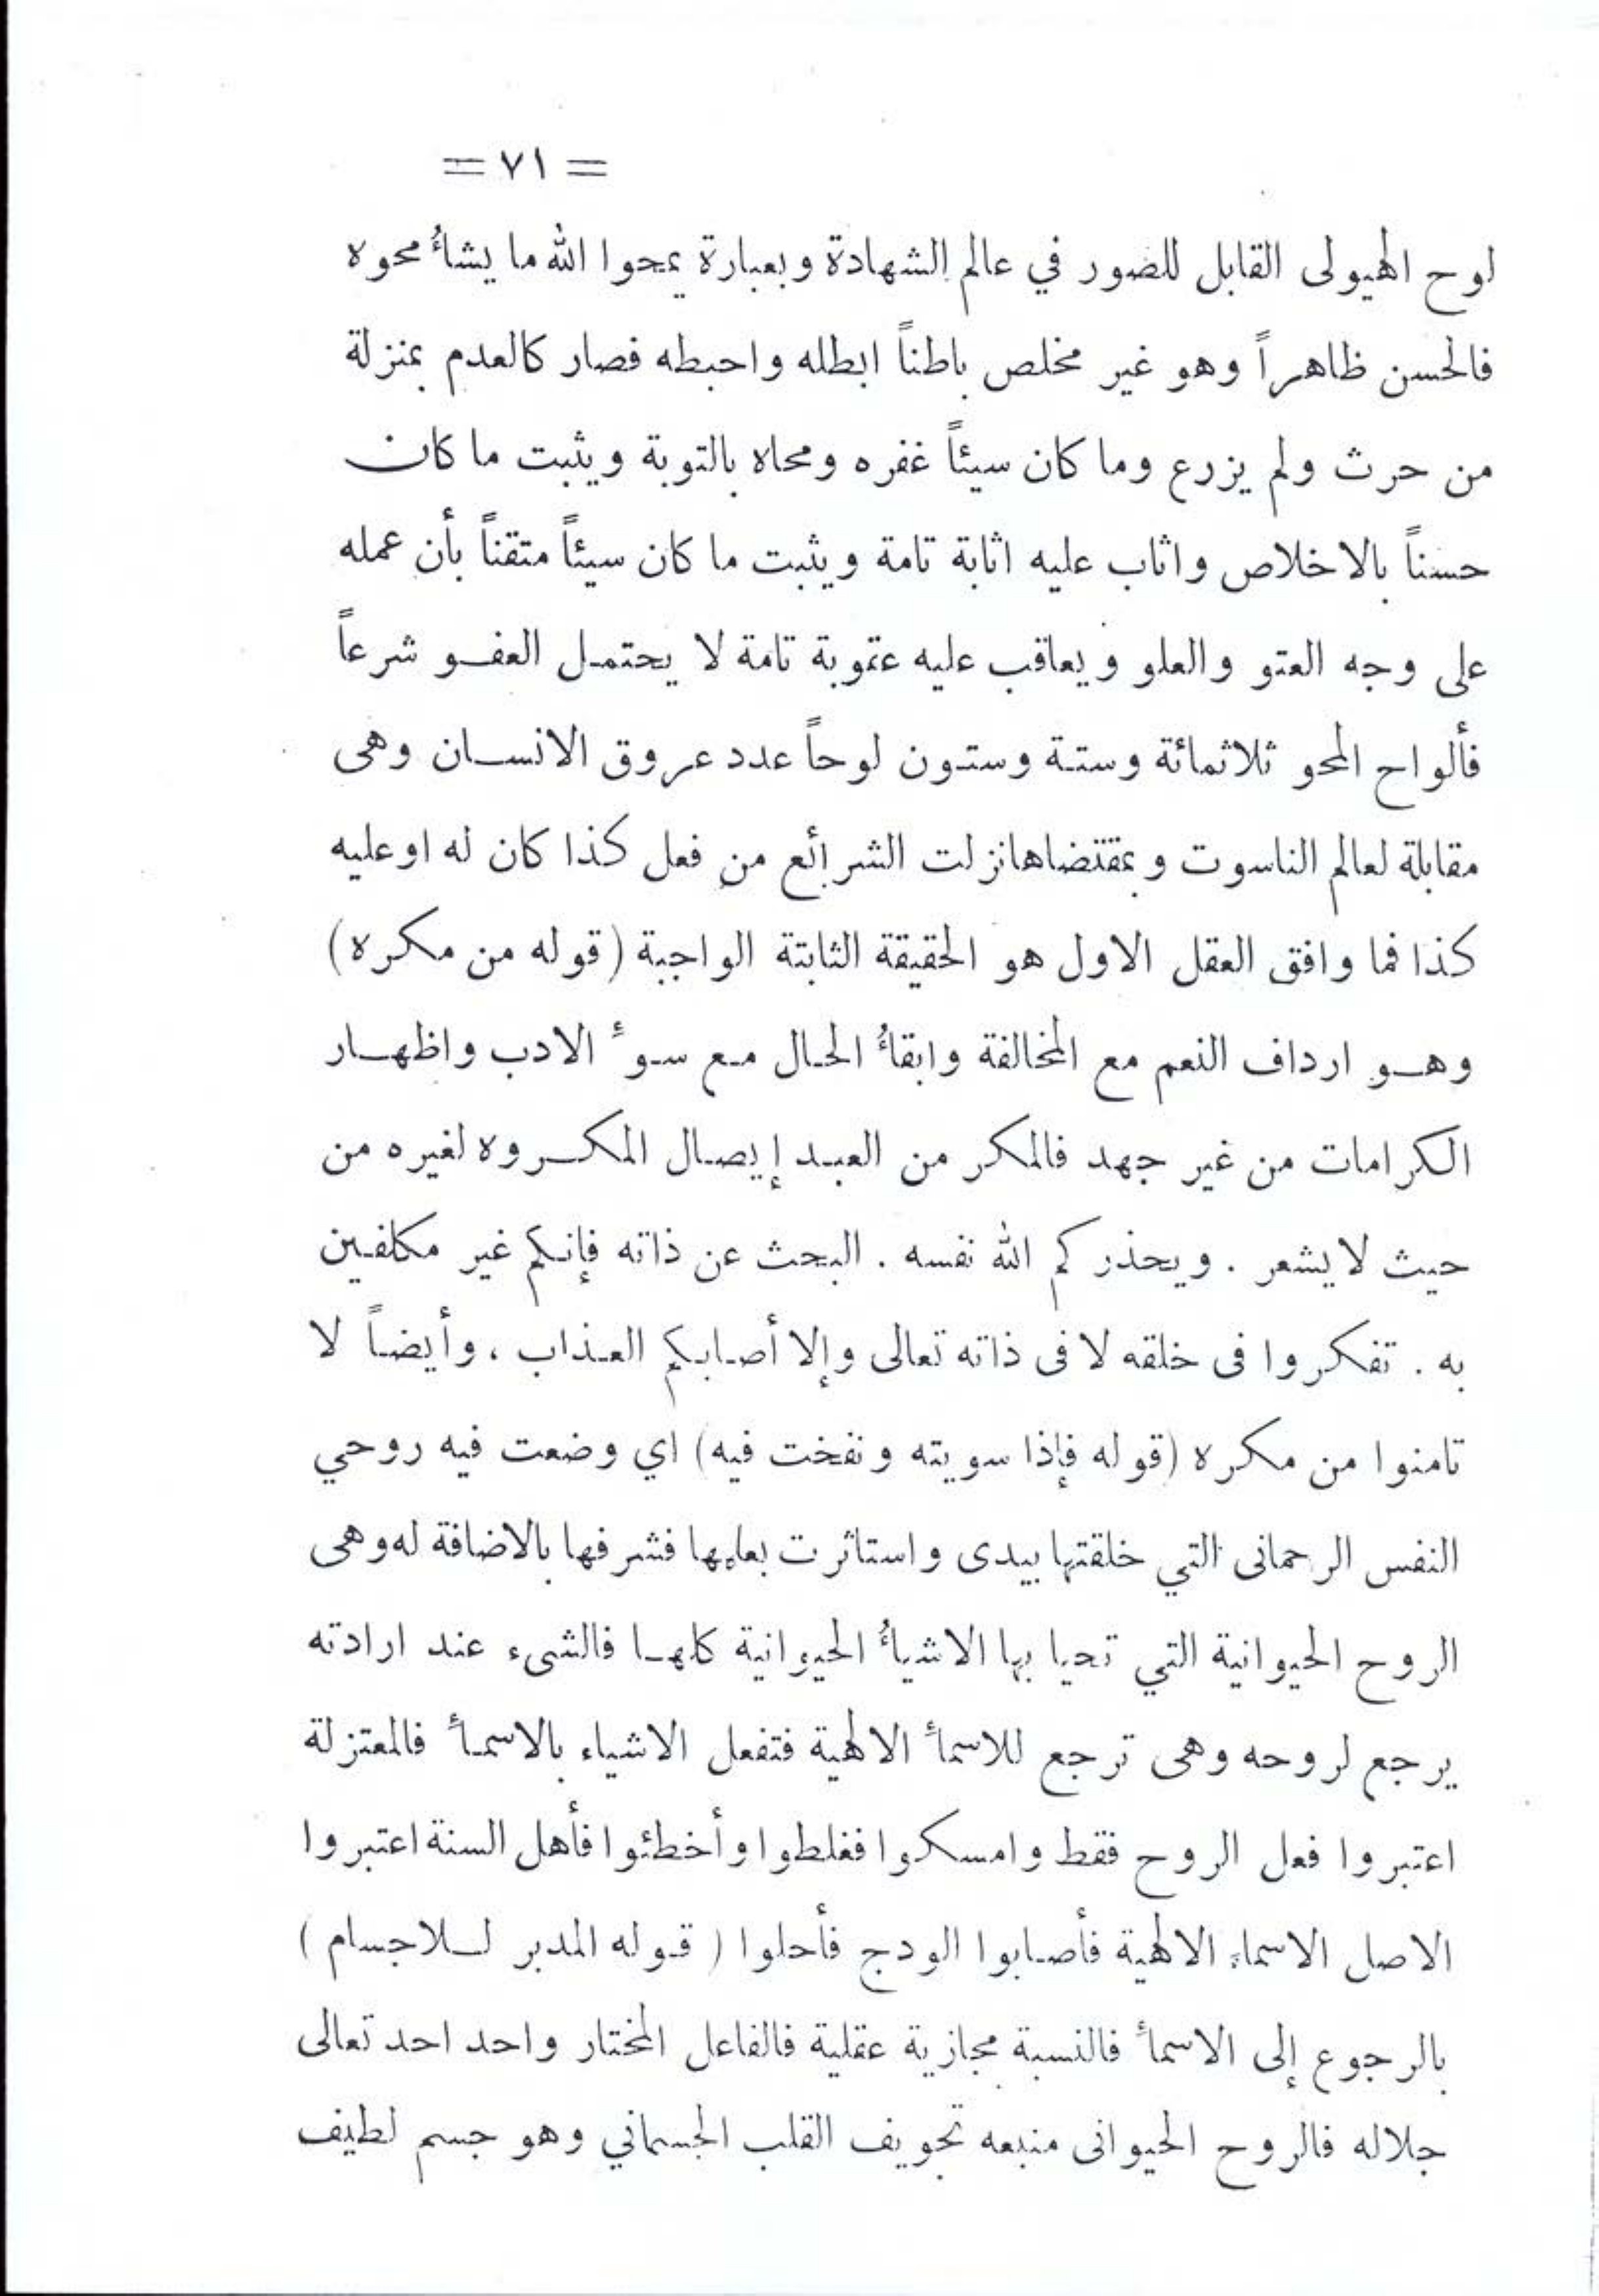 = ٧١ =
لوح الهيولى القابل للصور في عالم الشهادة وبعبارة يمحوا الله ما يشأُ محوه
فالحسن ظاهراً وهو غير مخلص باطناً ابطله واحبطه فصار كالعدم بمنزلة
من حرث ولم يزرع وما كان سيئاً غفره ومحاه بالتوبة ويثبت ما كان
حسناً بالاخلاص واثاب عليه اثابة تامة ويثبت ما كان سيئاً متقناً بأن عمله
على وجه العتو والعلو ويعاقب عليه عقوبة تامة لا يحتمل العفو شرعاً
فألواح المحو ثلاثمائة وستة وستون لوحاً عدد عروق الانسان وهى
مقابلة لعالم الناسوت وبمقتضاها نزلت الشرائع من فعل كذا كان له او عليه
كذا فما وافق العقل الاول هو الحقيقة الثابتة الواجبة (قوله من مكره)
وهو ارداف النعم مع المخالفة وابقأُ الحال مع سوءٔ الادب واظهار
الكرامات من غير جهد فالمكر من العبد إيصال المكروه لغيره من
حيث لا يشعر . ويحذركم الله نفسه . البحث عن ذاته فإنكم غير مكلفين
به . تفكروا فى خلقه لا فى ذاته تعالى وإلا أصابكم العذاب ، وأيضاً لا
تامنوا من مكره (قوله فإذا سويته ونفخت فيه) اي وضعت فيه روحي
النفس الرحمانى التي خلقتها بيدى واستاثرت بعلمها فشرفها بالاضافة له وهى
الروح الحيوانية التي تحيا بها الاشيأُ الحيوانية كلها فالشىء عند ارادته
يرجع لروحه وهى ترجع للاسمأ الالهية فتفعل الاشياء بالاسمأ فالمعتزلة
اعتبروا فعل الروح فقط وامسكوا فغلطوا وأخطئوا فأهل السنة اعتبروا
الاصل الاسماء الالهية فأصابوا الودج فأحلوا ( قوله المدبر للاجسام )
بالرجوع إلى الاسمأ فالنسبة مجازية عقلية فالفاعل المختار واحد احد تعالى
جلاله فالروح الحيوانى منبعه تجويف القلب الجسماني وهو جسم لطيف